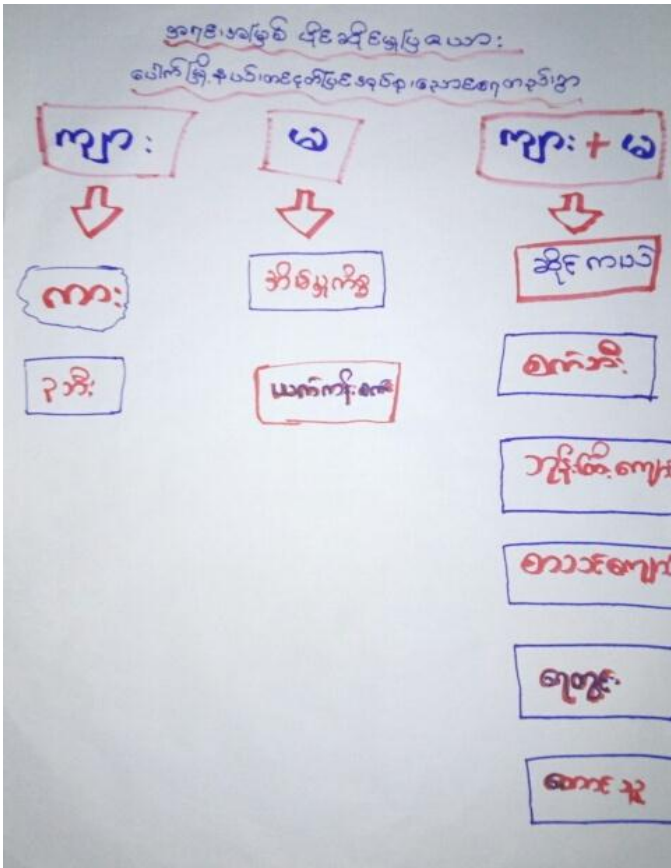 အရင်းအမြစ် ပိုင်ဆိုင်မှုပြဇယား
ပေါက်မြို့နယ်၊ အုပ်စု၊ ရွာ
ကျား
မ
ကျား + မ
ကား
၃ဘီး
အိမ်မှုကိစ္စ
ယက်ကန်းစက်
ဆိုင်ကယ်
စက်ဘီး
ဘုန်းကြီးကျော
စာသင်ကျော
ရေတွင်း
တောင်သူ